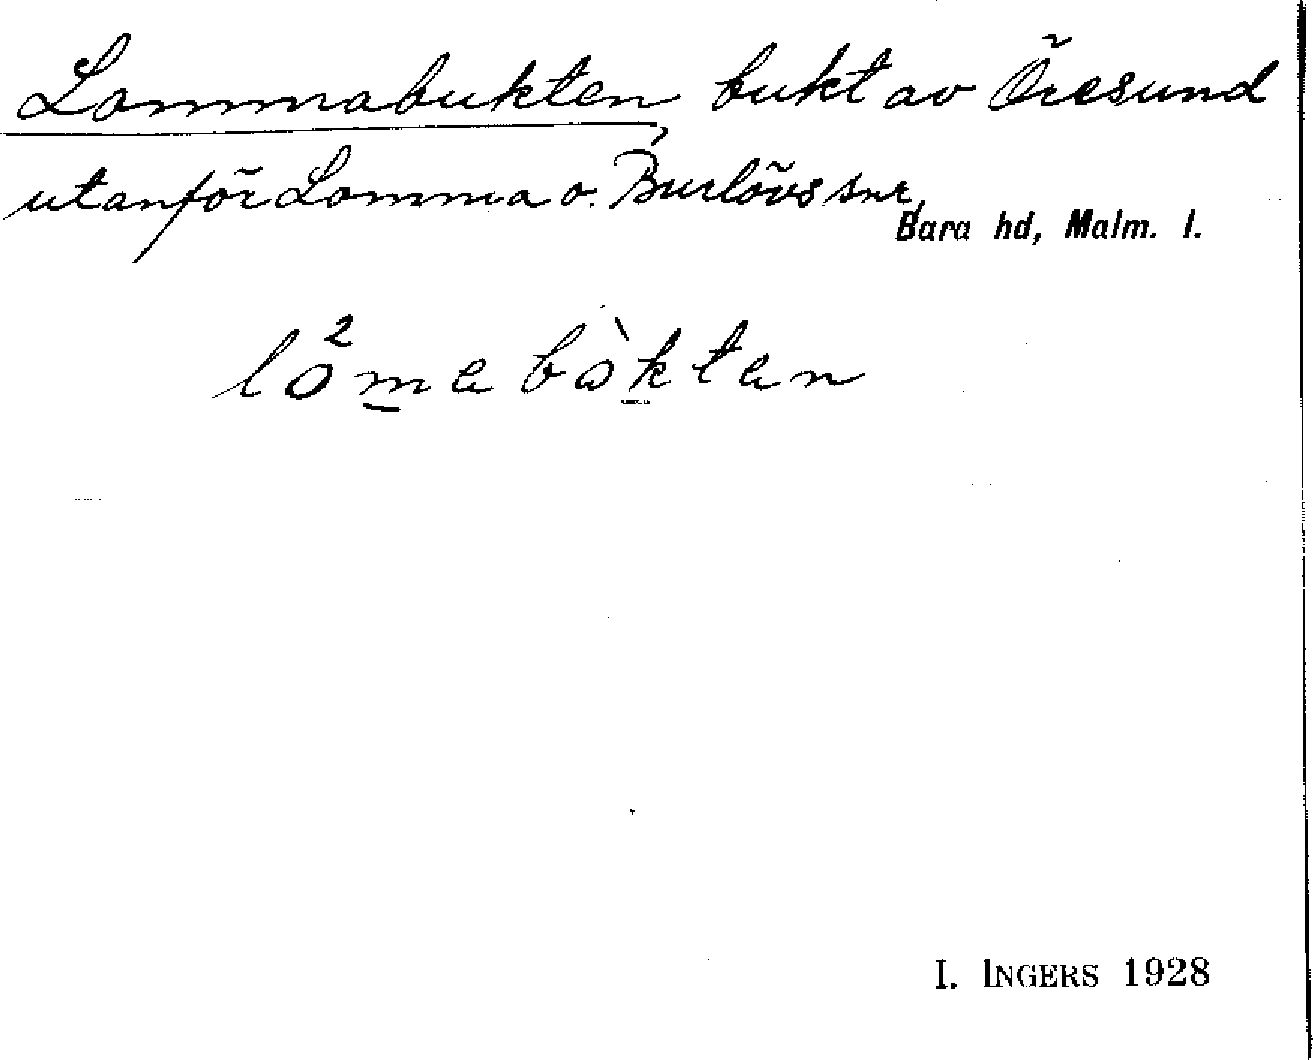 Lommabukten, bukt av Öresund
utanför Lomma o. Burlövs snr,
Bara hd, Malm. l.
lo²mabòktan
I. INGERS 1928